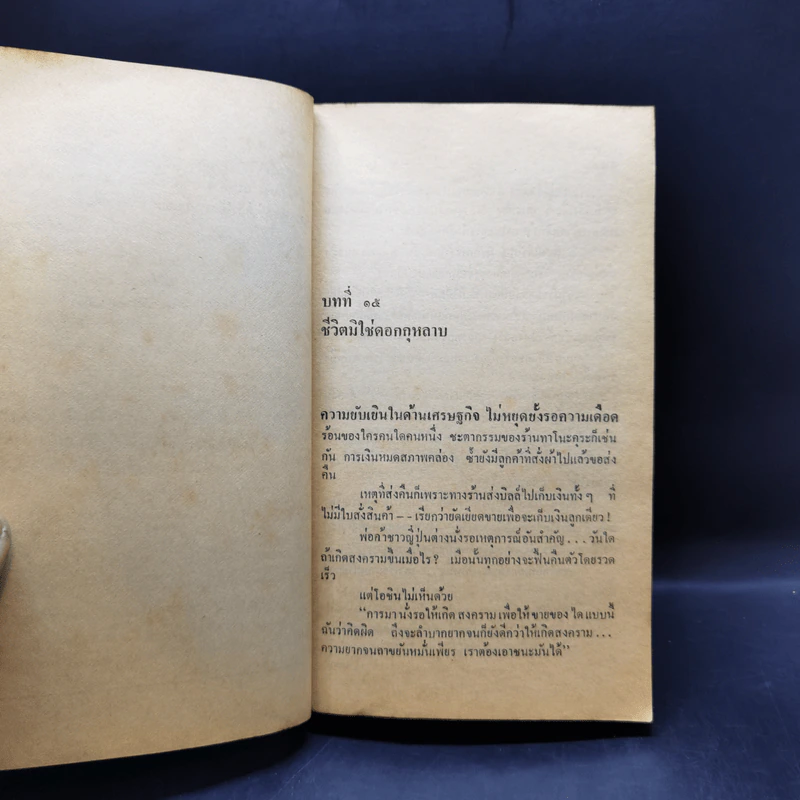 บทที่ ๑๕
ชีวิตมิใช่ดอกกุหลาบ
ความยับเยินในด้านเศรษฐกิจ ไม่หยุดยั้งรอความเดือด
ร้อนของใครคนใดคนหนึ่ง ชะตากรรมของร้านทาโนะคุระก็เช่น
กัน การเงินหมดสภาพคล่อง ซ้ำยังมีลูกค้าที่สั่งผ้าไปแล้วขอส่ง
คืน
เหตุที่ส่งคืนก็เพราะทางร้านส่งบิลล์ไปเก็บเงินทั้ง ๆ ที่
ไม่มีใบสั่งสินค้า -- เรียกว่ายัดเยียดขายเพื่อจะเก็บเงินลูกเดียว!
พ่อค้าชาวญี่ปุ่นต่างนั่งรอเหตุการณ์อันสำคัญ... วันใด
ถ้าเกิดสงครามขึ้นเมื่อไร? เมื่อนั้นทุกอย่างจะฟื้นคืนตัวโดยรวด
เร็ว
แต่โอชินไม่เห็นด้วย
"การมานั่งรอให้เกิดสงคราม เพื่อให้ขายของ ใดแบบนี้
ฉันว่าคิดผิด ถึงจะลำบากยากจนก็ยังดีกว่าให้เกิดสงคราม...
ความยากจนถาขยันหมั่นเพียร เราต้องเอาชนะมันได้"